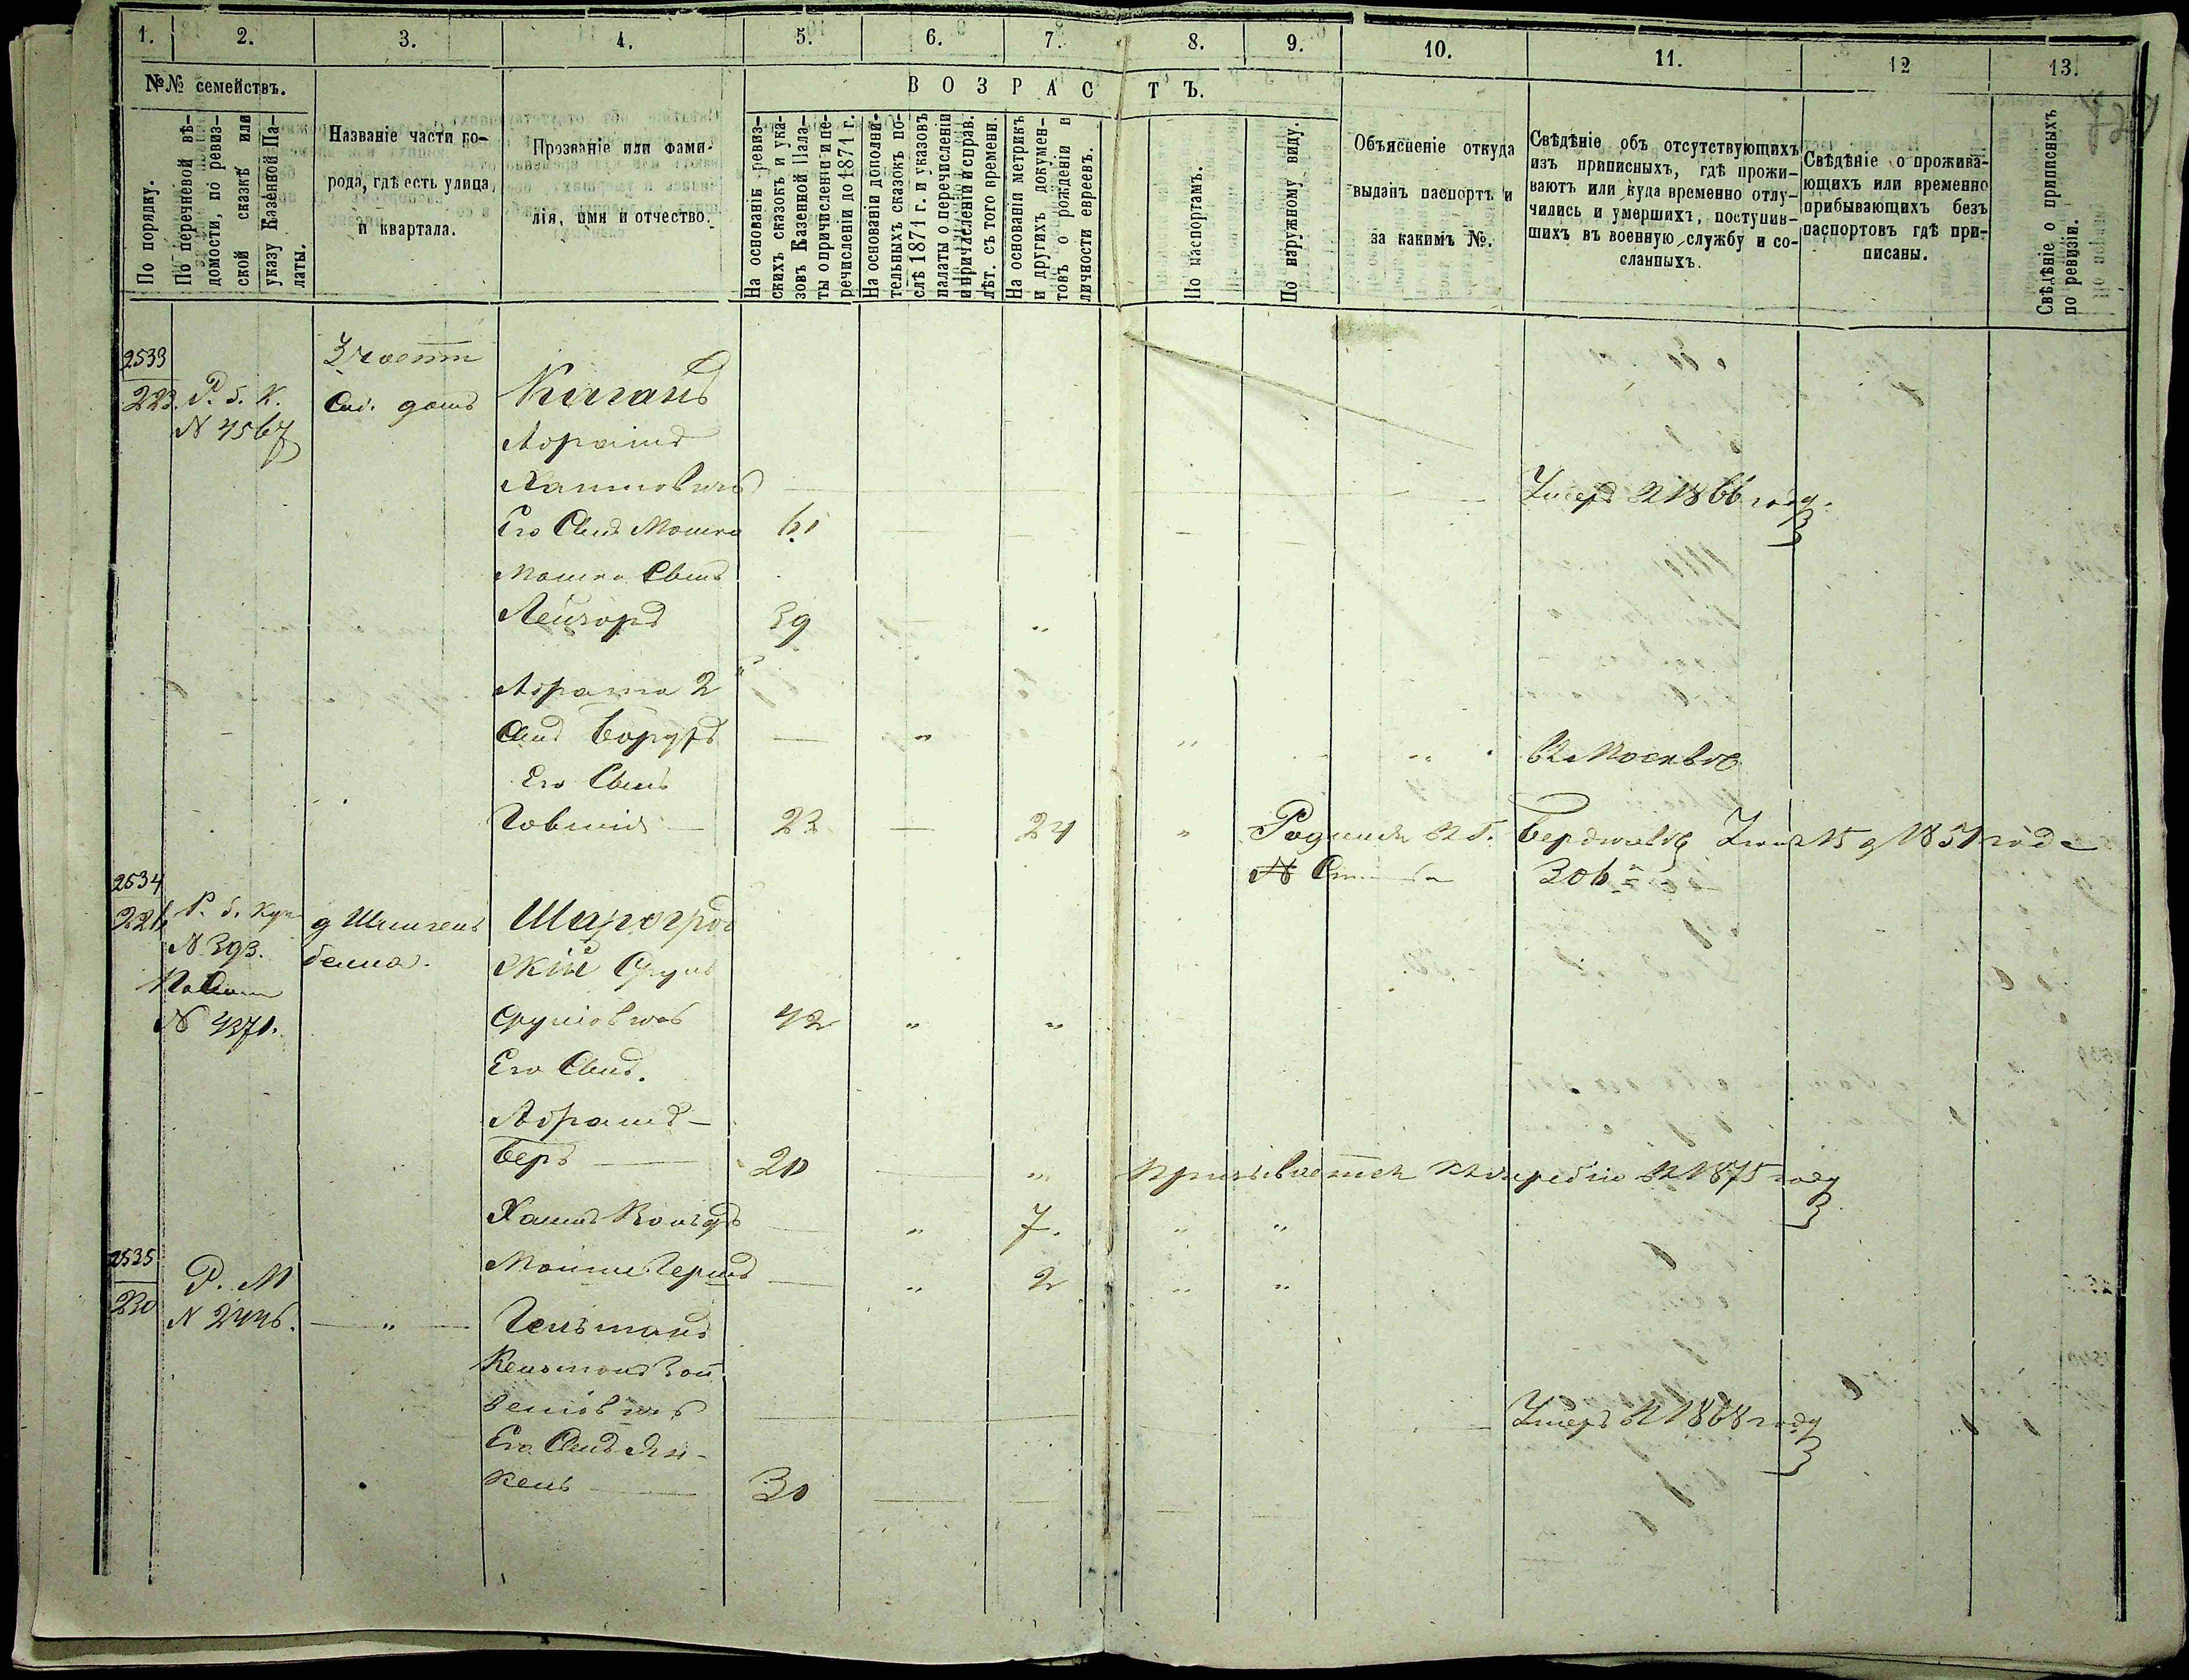 1. 2. 3. 4. 5. 6. 7. 8. 9. 10. 11. 12 13.
№№ семействъ.
ВОЗРАСТЪ.
По порядку.
По перечневой вѣ-
домости, по ревиз-
ской сказкѣ или
указу Казенной Па-
латы.
Названіе части го-
рода, гдѣ есть улица
и квартала.
Прозваніе или фами-
лія, имя и отчество.
На основаніи ревиз-
скихъ сказокъ и ука-
зовъ Казенной Пала-
ты о причисленіи и пе-
речисленіи до 1871 г.
На основаніи дополни-
тельныхъ сказокъ по-
слѣ 1871 г. и указовъ
палаты о перечисленіи
и причисленіи и справ.
лѣт. съ того времени.
На основаніи метрикъ
и другихъ докумен-
товъ о рожденіи и
личности евреевъ.
По паспортамъ.
По наружному виду.
Объясненіе откуда
выданъ паспортъ и
за какимъ №.
Свѣдѣніе объ отсутствующихъ
изъ приписныхъ, гдѣ прожи-
ваютъ или куда временно отлу-
чились и умершихъ, поступив-
шихъ въ военную службу и со-
сланныхъ.
Свѣдѣніе о прожива-
ющихъ или временно
прибывающихъ безъ
паспортовъ гдѣ при-
писаны.
Свѣдѣніе о приписныхъ
по ревизіи.
2533
3 части
223. Р. б. К. домъ Каганъ
N 4567
Абрамъ
Хаимовичъ Умеръ въ 1866 году.
Его Сынъ Мошко 61
Мошка Сынъ
Лейзоръ 39
Абрама 2
Сынъ Борухъ въ Москвѣ
Его Сынъ
Товий 23 24 Родился въ г. Бердичевѣ 15 д 1851 года
306
2534
226 Р. б. Куп д Шаргород
N 393.
скій Срулъ
N 4371. Сруліовичъ 42
Его Сынъ.
Абрамъ-
Беръ 20 призывается къ жребію въ 1875 году
Хаимъ Вольфъ 7.
Мошко Гершъ 2
2535
230 Р. М
N 2446. Гельманъ
Кельманъ Зай
веліовичъ Умеръ въ 1868 году
Его Сынъ Ян-
кель 30